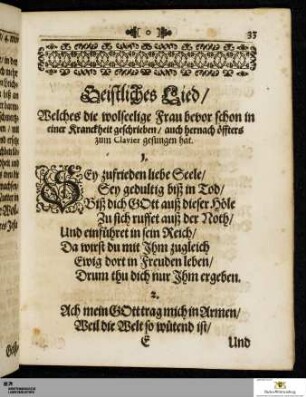 33
Geistliches Lied/
Welches die wolseelige Frau bevor schon in
einer Kranckheit geschrieben/ auch hernach öffters
zum Clavier gesungen hat.
1.
SEy zufrieden liebe Seele/
Sey gedultig biß in Tod/
Biß dich GOtt auß dieser Höle
Zu sich ruffet auß der Noth/
Und einführet in sein Reich/
Da wirst du mit Jhm zugleich
Ewig dort in Freuden leben/
Drum thu dich nur Jhm ergeben.
2.
Ach mein GOtt trag mich in Armen/
Weil die Welt so wütend ist/
E
Und